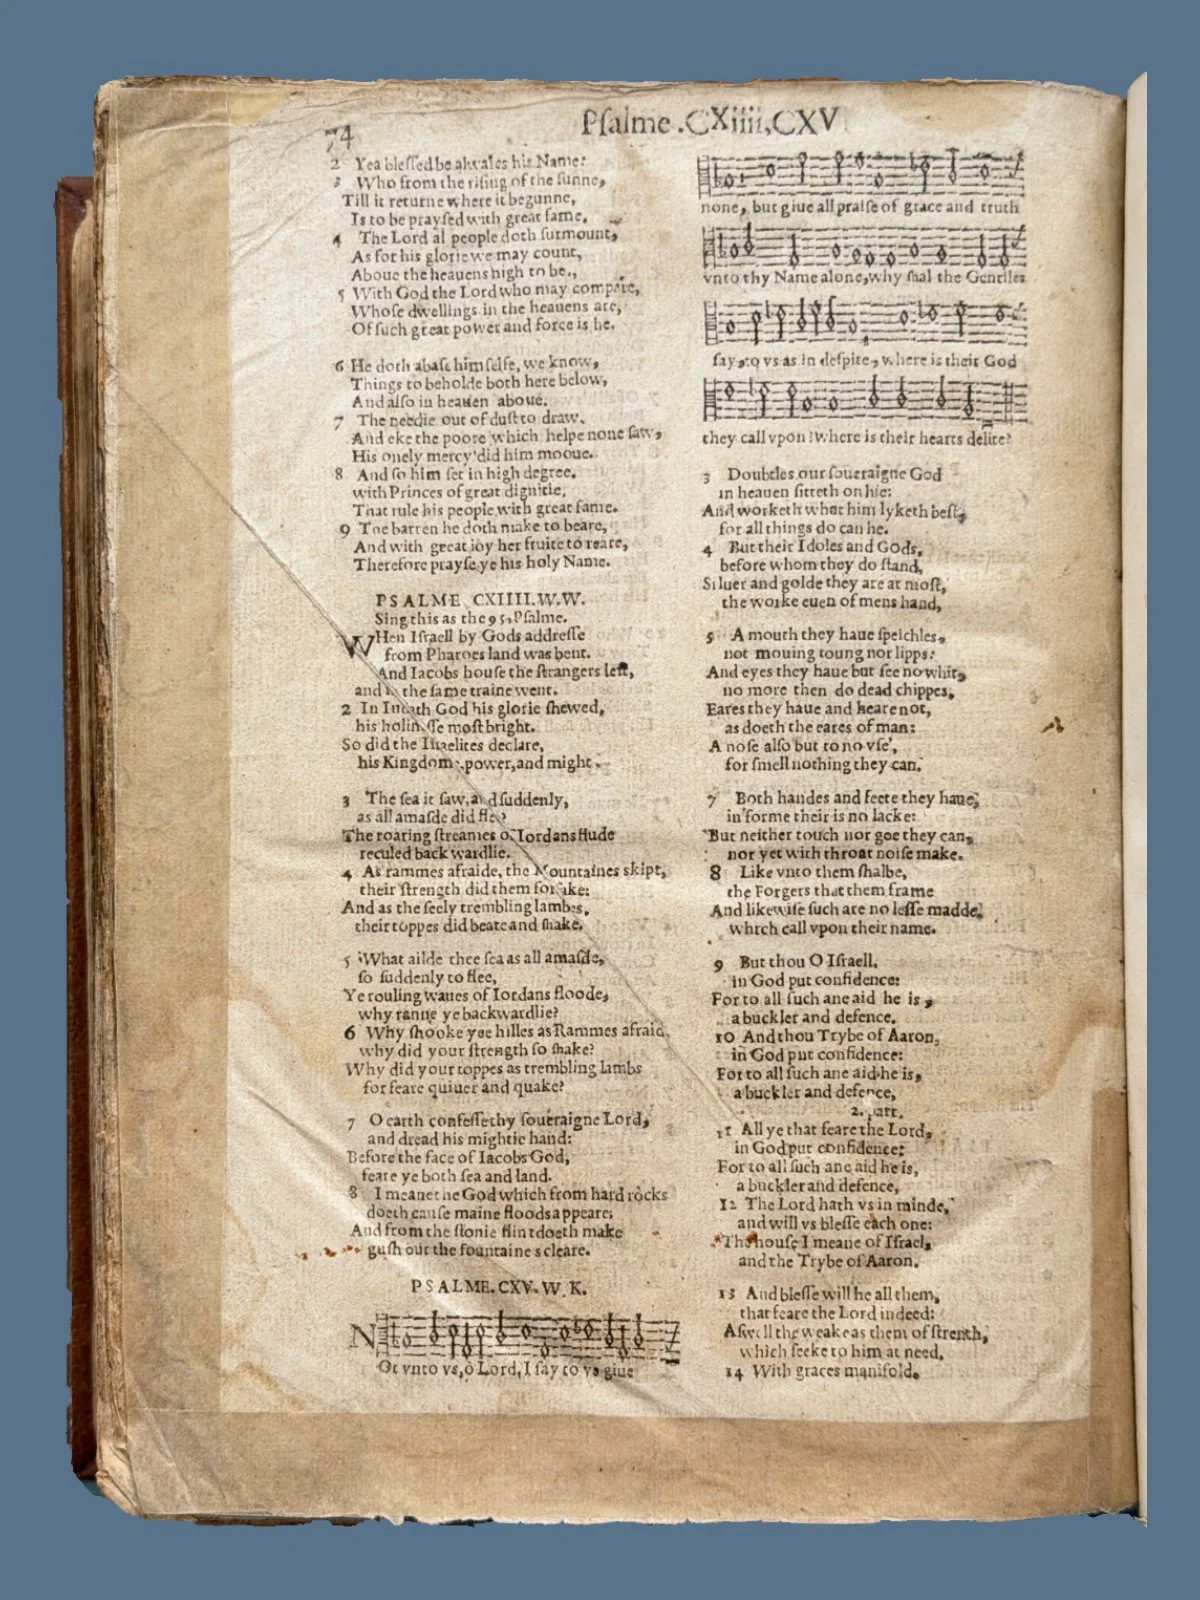 74
Pſalme .CXiiii,CXV
2 Yea bleſſed be alwaies his Name:
3 Who from the riſing of the ſunne,
Till it returne where it begunne,
Is to be prayſed with great fame.
4 The Lord al people doth ſurmount,
As for his glorie we may count,
Aboue the heauens high to be.,
5 With God the Lord who may compare,
Whoſe dwellings in the heauens are,
Of ſuch great power and force is he.
6 He doth abaſe him ſelfe, we know,
Things to beholde both here below,
And alſo in heauen aboue.
7 The needie out of duſt to draw.
And eke the poore which helpe none ſaw,
His onely mercy did him mooue.
8 And ſo him ſet in high degree.
with Princes of great dignitie,
That rule his people with great fame.
9 The barren he doth make to beare,
And with great ioy her fruite to reare,
Therefore prayſe ye his holy Name.
PSALME CXIIII.W.W.
Sing this as the 95, Pſalme.
WHen Iſraell by Gods addreſſe
from Pharoes land was bent.
And Iacobs houſe the ſtrangers left,
and in the ſame traine went.
2 In Iudath God his glorie ſhewed,
his holineſſe moſt bright.
So did the Iſraelites declare,
his Kingdom, power, and might.
3 The ſea it ſaw, and ſuddenly,
as all amaſde did flee?
The roaring ſtreames of Iordans flude
reculed backwardlie.
4 As rammes afraide, the Mountaines skipt,
their ſtrength did them forſake:
And as the ſeely trembling lambes,
their toppes did beate and ſhake.
5 What ailde thee ſea as all amaſde,
ſo ſuddenly to flee,
Ye rouling waues of Iordans floode,
why ranne ye backwardlie?
6 Why ſhooke yee hilles as Rammes afraid,
why did your ſtrength ſo ſhake?
Why did your toppes as trembling lambs
for feare quiuer and quake?
7 O earth confeſſe thy ſoueraigne Lord,
and dread his mightie hand:
Before the face of Iacobs God,
feare ye both ſea and land.
8 I meane the God which from hard rocks
doeth cauſe maine floods appeare:
And from the ſtonie flint doeth make
guſh out the fountaines cleare.
PSALME.CXV.W.K.
NOt vnto vs, o Lord, I ſay to vs giue
none, but giue all praiſe of grace and truth
vnto thy Name alone, why ſhal the Gentiles
ſay, to vs as in deſpite, where is their God
they call vpon? where is their hearts delite?
3 Doubtles our ſoueraigne God
in heauen ſitteth on hie:
And worketh what him lyketh beſt,
for all things do can he.
4 But their Idoles and Gods,
before whom they do ſtand,
Siluer and golde they are at moſt,
the worke euen of mens hand,
5 A mouth they haue ſpeichles,
not mouing toung nor lipps:
And eyes they haue but ſee no whit,
no more then do dead chippes.
Eares they haue and heare not,
as doeth the eares of man:
A noſe alſo but to no vſe,
for ſmell nothing they can.
7 Both handes and feete they haue,
in forme their is no lacke:
But neither touch nor goe they can,
nor yet with throat noiſe make.
8 Like vnto them ſhalbe,
the Forgers that them frame
And likewiſe ſuch are no leſſe madde,
which call vpon their name.
9 But thou O Iſraell,
in God put confidence:
For to all ſuch ane aid he is,
a buckler and defence.
10 And thou Trybe of Aaron,
in God put confidence:
For to all ſuch ane aid he is,
a buckler and defence,
2. part.
11 All ye that feare the Lord,
in God put confidence:
For to all ſuch ane aid he is,
a buckler and defence,
12 The Lord hath vs in minde,
and will vs bleſſe each one:
The houſe I meane of Iſrael,
and the Trybe of Aaron.
13 And bleſſe will he all them,
that feare the Lord indeed:
Aſwell the weake as them of ſtrenth,
which ſeeke to him at need,
14 With graces manifold.